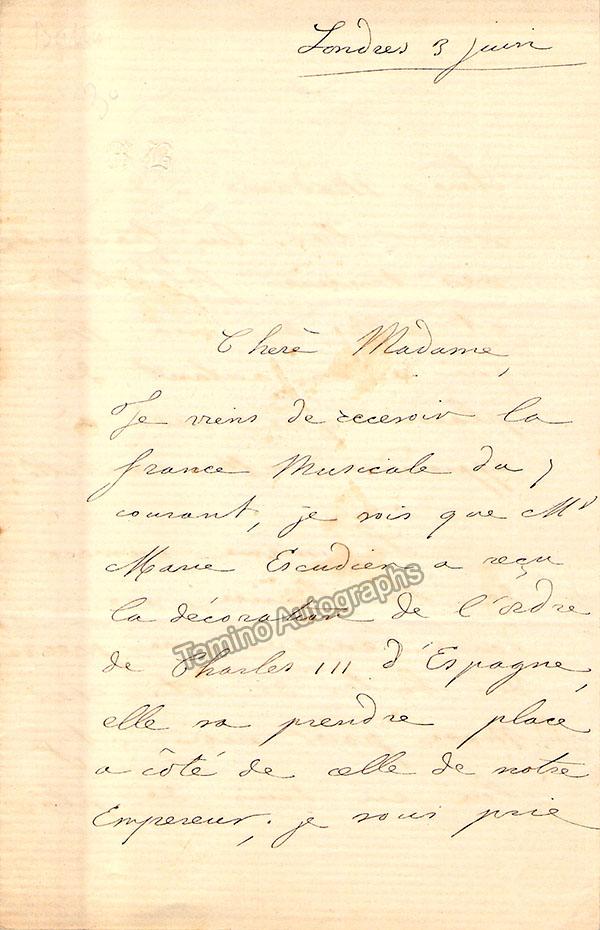 Londres 3 juin
Chere Madame,
Je viens de recevoir la
france Musicale du 7
courant, je vois que Mr
Marie Escudier a reçu
la décoration de l'ordre
de Charles III d'Espagne,
elle va prendre place
a côté de celle de notre
Empereur, je vous prie
Tamino Autographs